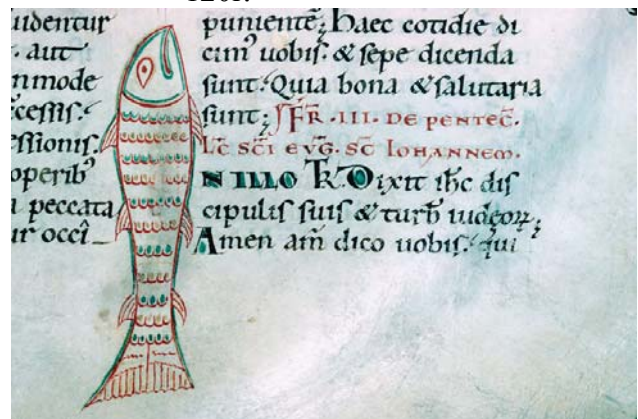 udentur
. aut
nmode
cessis.
ssionis.
operibꝰ
a peccata
ur occi
puniente; haec cotidie di
cimꝰ uobis. & sepe dicenda
sunt. Quia bona & salutaria
sunt; FR̄ .III. DE PENTEC̄.
LC̄ SCĪ EVḠ. SC̄ IOHANNEM.
N ILLO TR̄. Dixit ih̄c dis
cipulis suis & turb̄ iudęoꝝ;
Amen am̄ dico uobis. qui